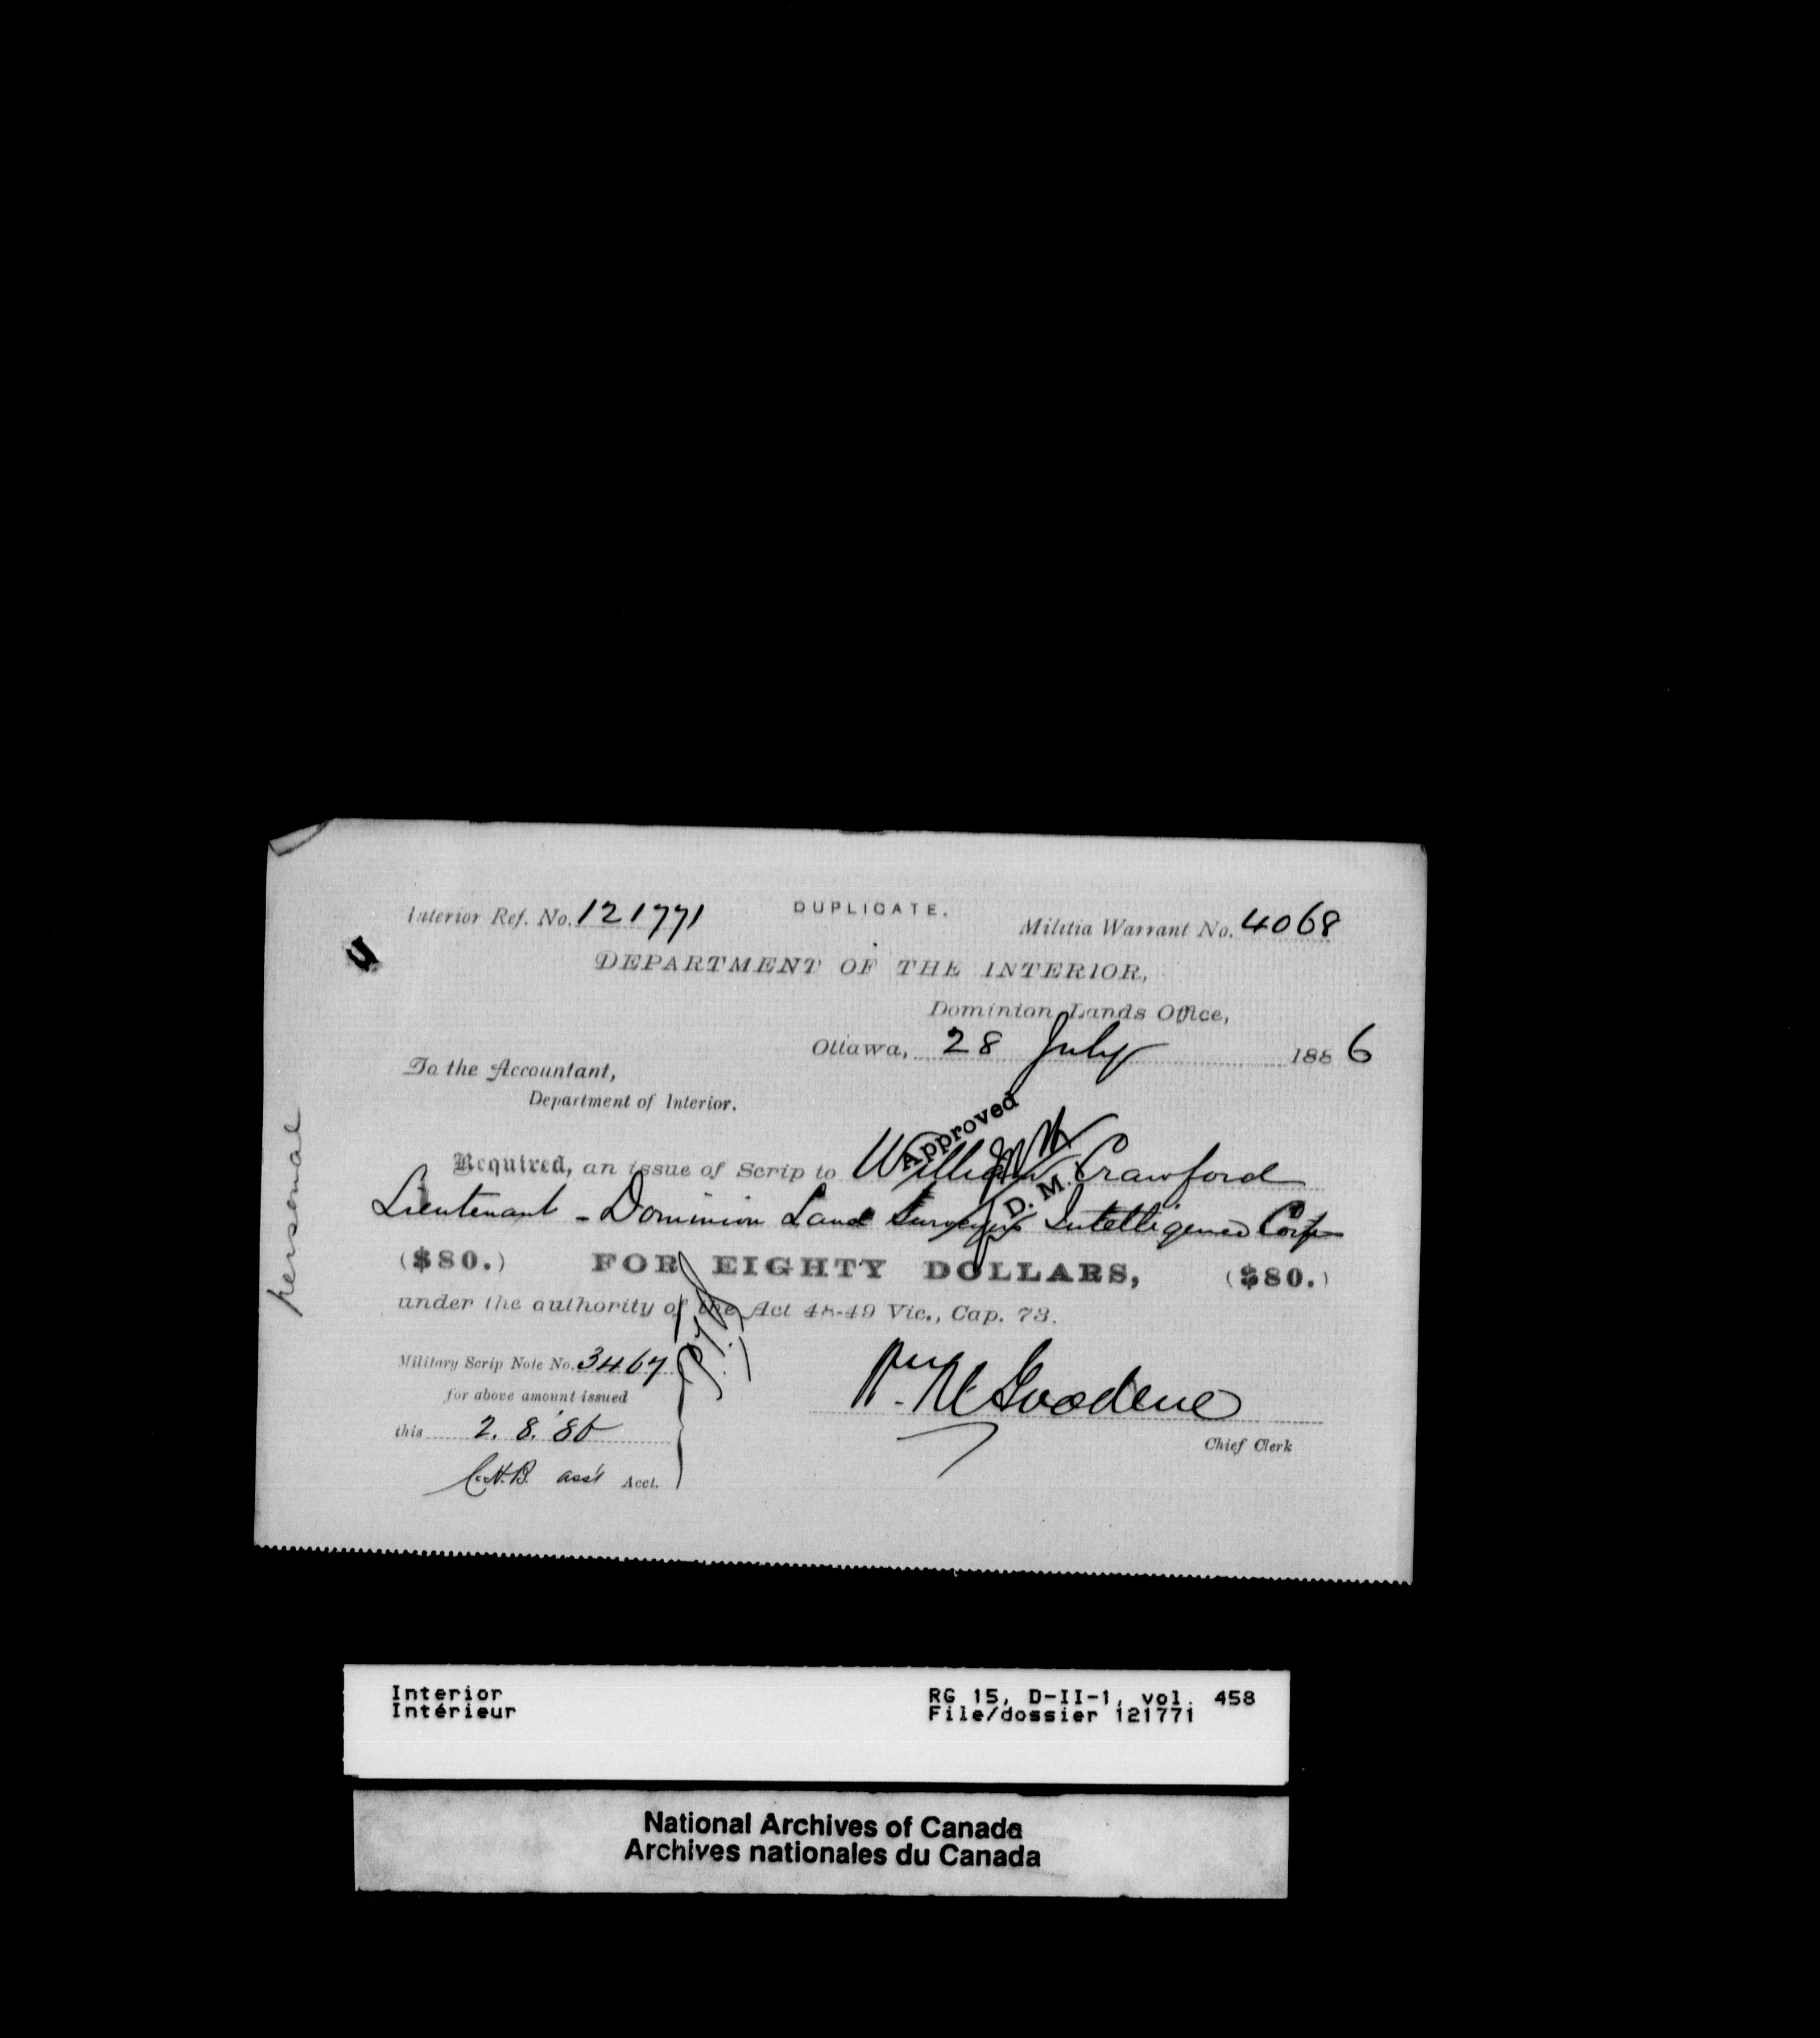 Interior Ref. No. 121771
DUPLICATE.
Militia Warrant No. 4068
DEPARTMENT OF THE INTERIOR,
Dominion Lands Office,
Ottawa, 28 July 1886
To the Accountant,
Department of Interior.
personal
Approved
D. M.
Required, an issue of Scrip to William Crawford
Lieutenant - Dominion Land Surveyors Intelligence Corps
($80.) FOR EIGHTY DOLLARS, ($80.)
under the authority of the Act 48-49 Vic., Cap. 73.
Military Scrip Note No. 3467
for above amount issued
this 2. 8. '86
C.H.B. ass't Acct.
Chief Clerk
Interior
Intérieur
RG 15, D-II-1, vol. 458
File/dossier 121771
National Archives of Canada
Archives nationales du Canada